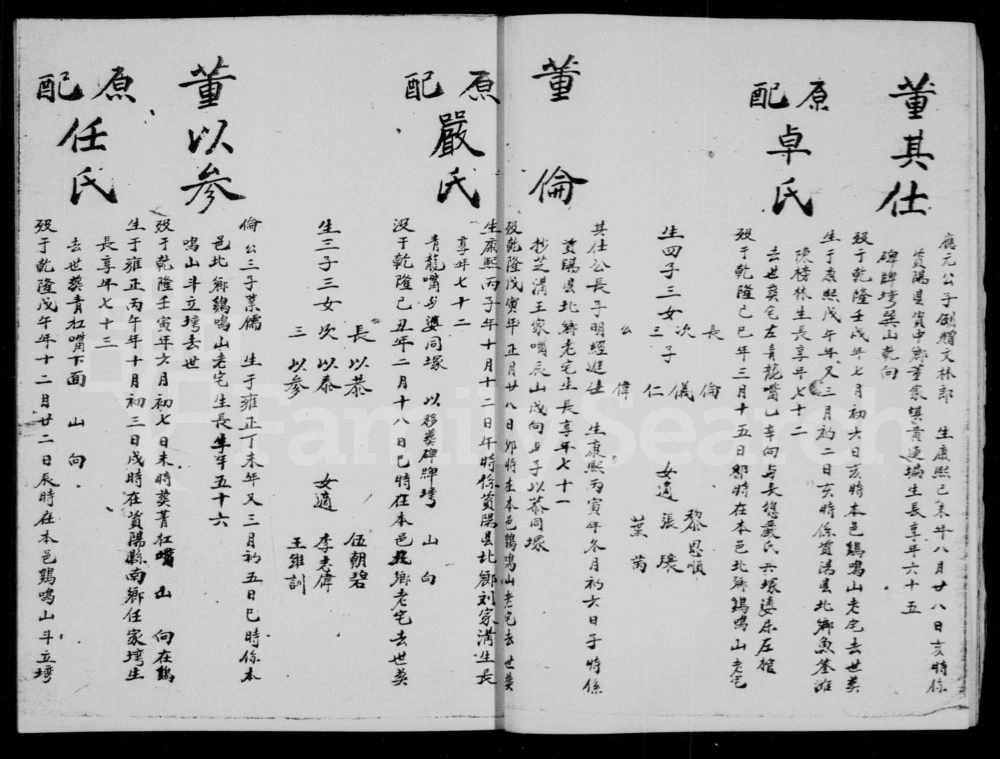 董其仕
應元公子例贈文林郎 生康熙己未年八月廿八日亥時係
資陽縣資中鄉董家埧黄連塥生長享年六十五
碑牌塆癸山乾向
殁于乾隆壬戌年七月初六日亥時本邑鷄鳴山老宅去世葬
原配卓氏
生于康熙戊午年又三月初二日亥時係資陽县北鄉魚釜滩
陳楼林生長享年七十二
去世葬宅左青龍嘴乙辛向与長媳嚴氏六塚婆居左棺
殁于乾隆己巳年三月十五日卯時在本邑北鄉鷄鳴山老宅
生四子三女
長 倫
次 儀
三子 仁
么 偉
女適
黎恩順
張瑗
葉芮
董倫
其仕公長子明經進士 生康熙丙寅年冬月初六日子時係
資陽县北鄉老宅生長享年七十一
抄芝溝王家嘴辰山戌向与子以恭同塚
殁乾隆戊寅年正月廿八日卯時在本邑鷄鳴山老宅去世葬
原配嚴氏
生康熙丙子年十月十二日午時係資陽县北鄉刘家溝生長
享年七十二
青龍嘴与婆同塚 以移葵碑牌塆 山向
没于乾隆己丑年二月十八日巳時在本邑北鄉老宅去世葬
生三子三女
長以恭
次以泰
三以參
女適
伍朝碧
李志偉
王維訓
董以參
倫公三子業儒 生于雍正丁未年又三月初五日巳時係本
邑北鄉鷄鳴山老宅生長享年五十六
鳴山斗立塆去世
殁于乾隆壬寅年六月初七日未時葵菁杠嘴 山 向在鷄
原配任氏
生于雍正丙午年十月初三日戌時在資陽縣南鄉任家塆生
長享年七十三
去世葵青杠嘴下面 山 向
殁于乾隆戊午年十二月廿二日辰時在本邑鷄鳴山斗立塆
FamilySearch